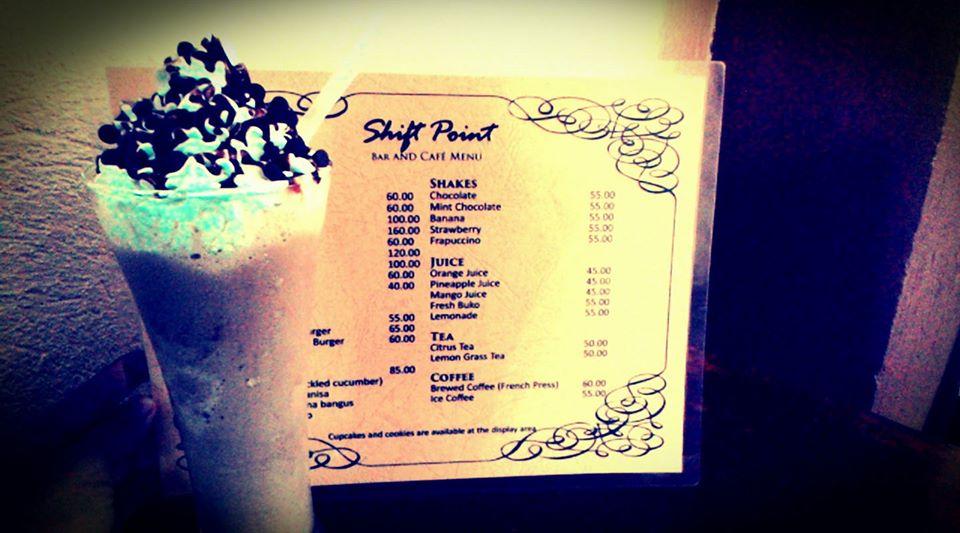 Shift Point
BAR AND CAFÉ MENU
60.00
60.00
100.00
160.00
60.00
120.00
100.00
60.00
40.00
55.00
65.00
60.00
85.00
urger
Burger
ckled cucumber)
anisa
na bangus
o
SHAKES
Chocolate 55.00
Mint Chocolate 55.00
Banana 55.00
Strawberry 55.00
Frapuccino 55.00
JUICE
Orange Juice 45.00
Pineapple Juice 45.00
Mango Juice 45.00
Fresh Buko 55.00
Lemonade 55.00
TEA
Citrus Tea 50.00
Lemon Grass Tea 50.00
COFFEE
Brewed Coffee (French Press) 60.00
Ice Coffee 55.00
Cupcakes and cookies are available at the display area